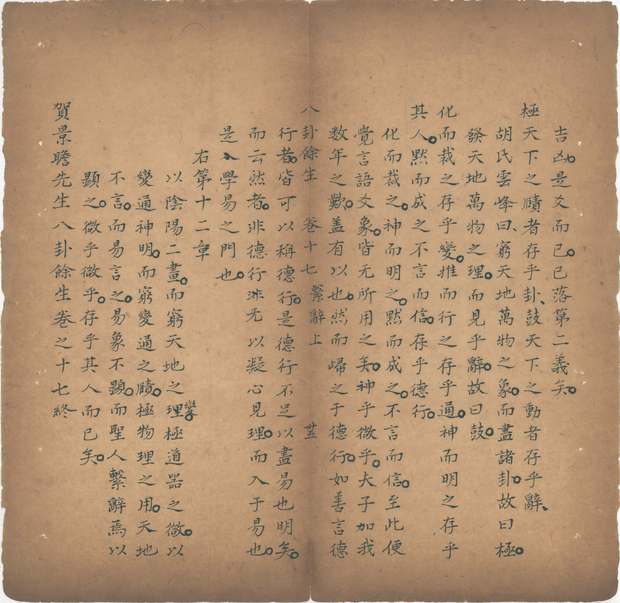 吉凶是爻而已已落第二義矣
極天下之賾者存乎卦鼓天下之動者存乎辭
胡氏雲峰曰窮天地萬物之象而盡諸卦故曰極
發天地萬物之理而見乎辭故曰鼓
化而裁之存乎變推而行之存乎通神而明之存乎
其人默而成之不言而信存乎德行
化而裁之神而明之默而成之不言而信至此便
覺言語文象皆无所用之矣神乎微乎大子加我
數年之歎蓋有以也然而歸之于德行如善言德
八卦餘生 卷十七 繫辭上 芏
行者皆可以稱德行是德行不足以盡易也明矣
而云然者非德行池无以凝心見理而入于易也
是入學易之門也
右第十二章
以陰陽二畫而窮天地之理舉極道器之微以
變通神明而窮變通之賾極物理之用天地
不言而易言之易象不顯而聖人繫辭焉以
顯之微乎微乎存乎其人而已矣
賀景瞻先生八卦餘生卷之十七終